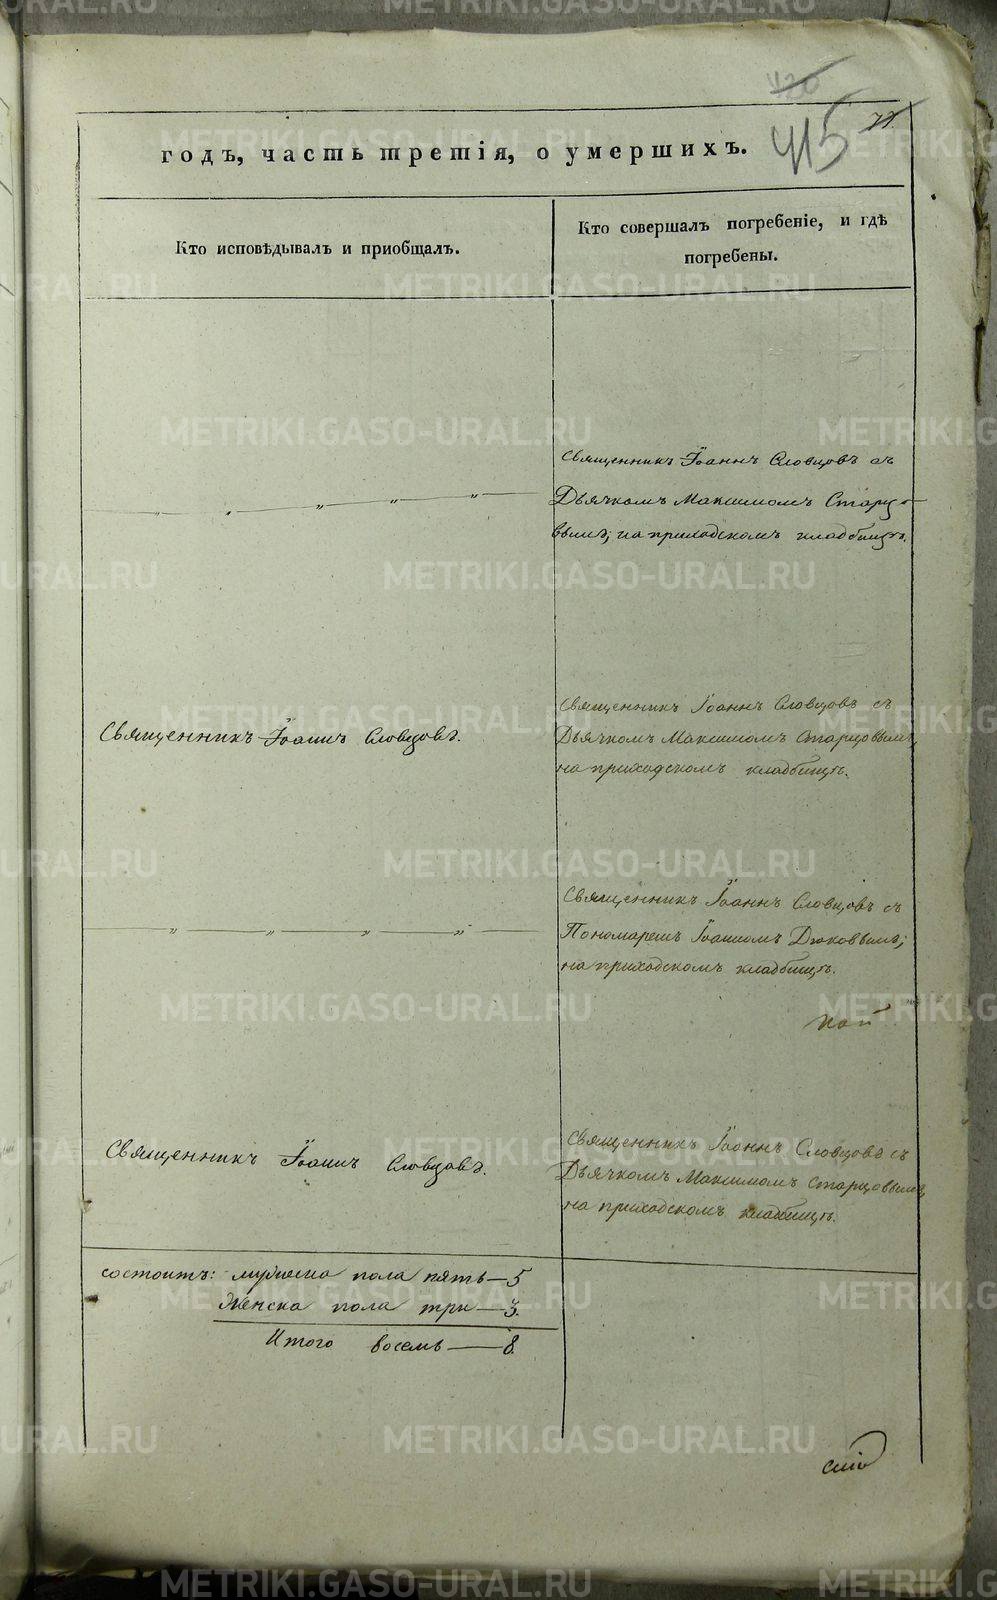 420
415
77
годъ, часть третія, о умершихъ.
Кто исповѣдывалъ и приобщалъ.
Кто совершалъ погребеніе, и гдѣ
погребены.
Священникъ Іоаннъ Словцовъ съ
Дьячкомъ Максимомъ Старцо-
вымъ; на приходскомъ кладбищѣ.
Священникъ Іоаннъ Словцовъ.
Священникъ Іоаннъ Словцовъ съ
Дьячкомъ Максимомъ Старцовымъ,
на приходскомъ кладбищѣ.
Священникъ Іоаннъ Словцовъ съ
Пономаремъ Іоанномъ Дюковымъ;
на приходскомъ кладбищѣ.
Священникъ Іоаннъ Словцовъ.
Священникъ Іоаннъ Словцовъ съ
Дьячкомъ Максимомъ Старцовымъ,
на приходскомъ кладбищѣ.
состоитъ: мужеска пола пять—5
Женска пола три—3.
Итого восемь—8.
METRIKI.GASO-URAL.RU